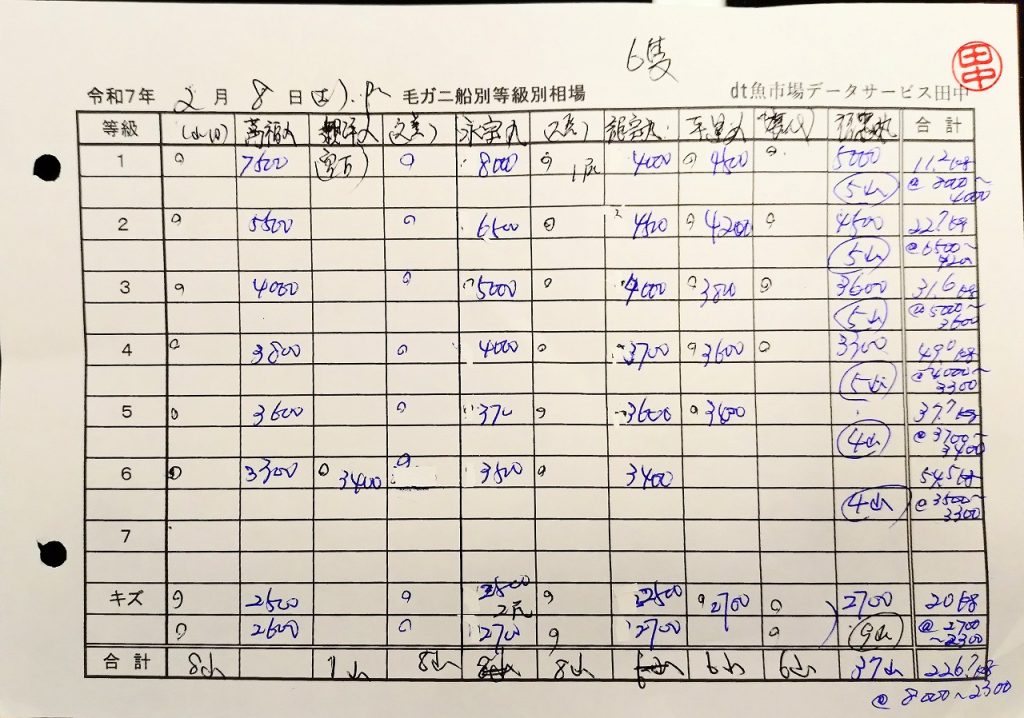 6隻
令和7年 2月 8日(土).PM 毛ガニ船別等級別相場 dt魚市場データサービス田中
田中
等級 萬福丸 永宝丸 龍宝丸 合計
1 7500 8000 1尾 4000 4500 5000 11.2kg
5山 @8000~4000
2 5500 6500 4500 4200 4500 22.7kg
5山 @6500~4200
3 4000 5000 4000 3800 3600 31.6kg
5山 @5000~3600
4 3800 4000 3700 3600 3300 49.0kg
5山 @4000~3300
5 3600 370 3600 3400 37.7kg
4山 @3700~3400
6 3300 3400 3500 3400 54.5kg
4山 @3500~3300
7
キズ 2500 2500 2尾 2500 2700 2700 20kg
2600 2700 2700 9山 @2700~2300
合計 8山 1山 8山 8山 8山 6山 6山 6山 37山 226.7kg
@8000~2300